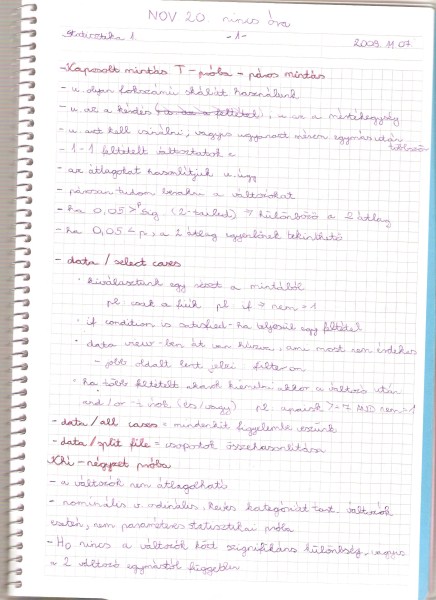 NOV 20. nincs óra
Statisztika 1 -1- 2009. 11. 07.
- Kapcsolt mintás T-próba - páros mintás
- u. olyan fokszámú skálát használunk
- u. az a kérdés, u. az a mértékegység
- u. azt kell csinálni, vagyis ugyanazt mérem egymás után többször
- 1-1 feltételt változtatok
- az átlagokat hasonlítjuk u. úgy
- párosan tudom berakni a változókat
- ha 0,05 > p sig. (2-tailed) → különböző a 2 átlag
- ha 0,05 < p, a 2 átlag egyenlőnek tekinthető
- data / select cases
· kiválasztunk egy részt a mintából
pl: csak a fiúk pl if → nem = 1
· if condition is satisfied - ha teljesül egy feltétel
· data view-ben át van húzva, ami most nem érdekes
- jobb oldalt lent jelei: filter on
· ha több feltételt akarok kiemelni akkor a változó után
and / or -t írok (és/vagy) pl: apaisk >= 7 AND nem = 1
- data / all cases = mindenkit figyelembe veszünk
- data / split file = csoportok összehasonlítása
Khi-négyzet próba
- a változók nem átlagolható
- nominális v. ordinális, kevés kategóriát tart. változók
esetén, nem paraméteres statisztikai próba
- H0 nincs a változók közt szignifikáns különbség, vagyis
a 2 változó egymástól független